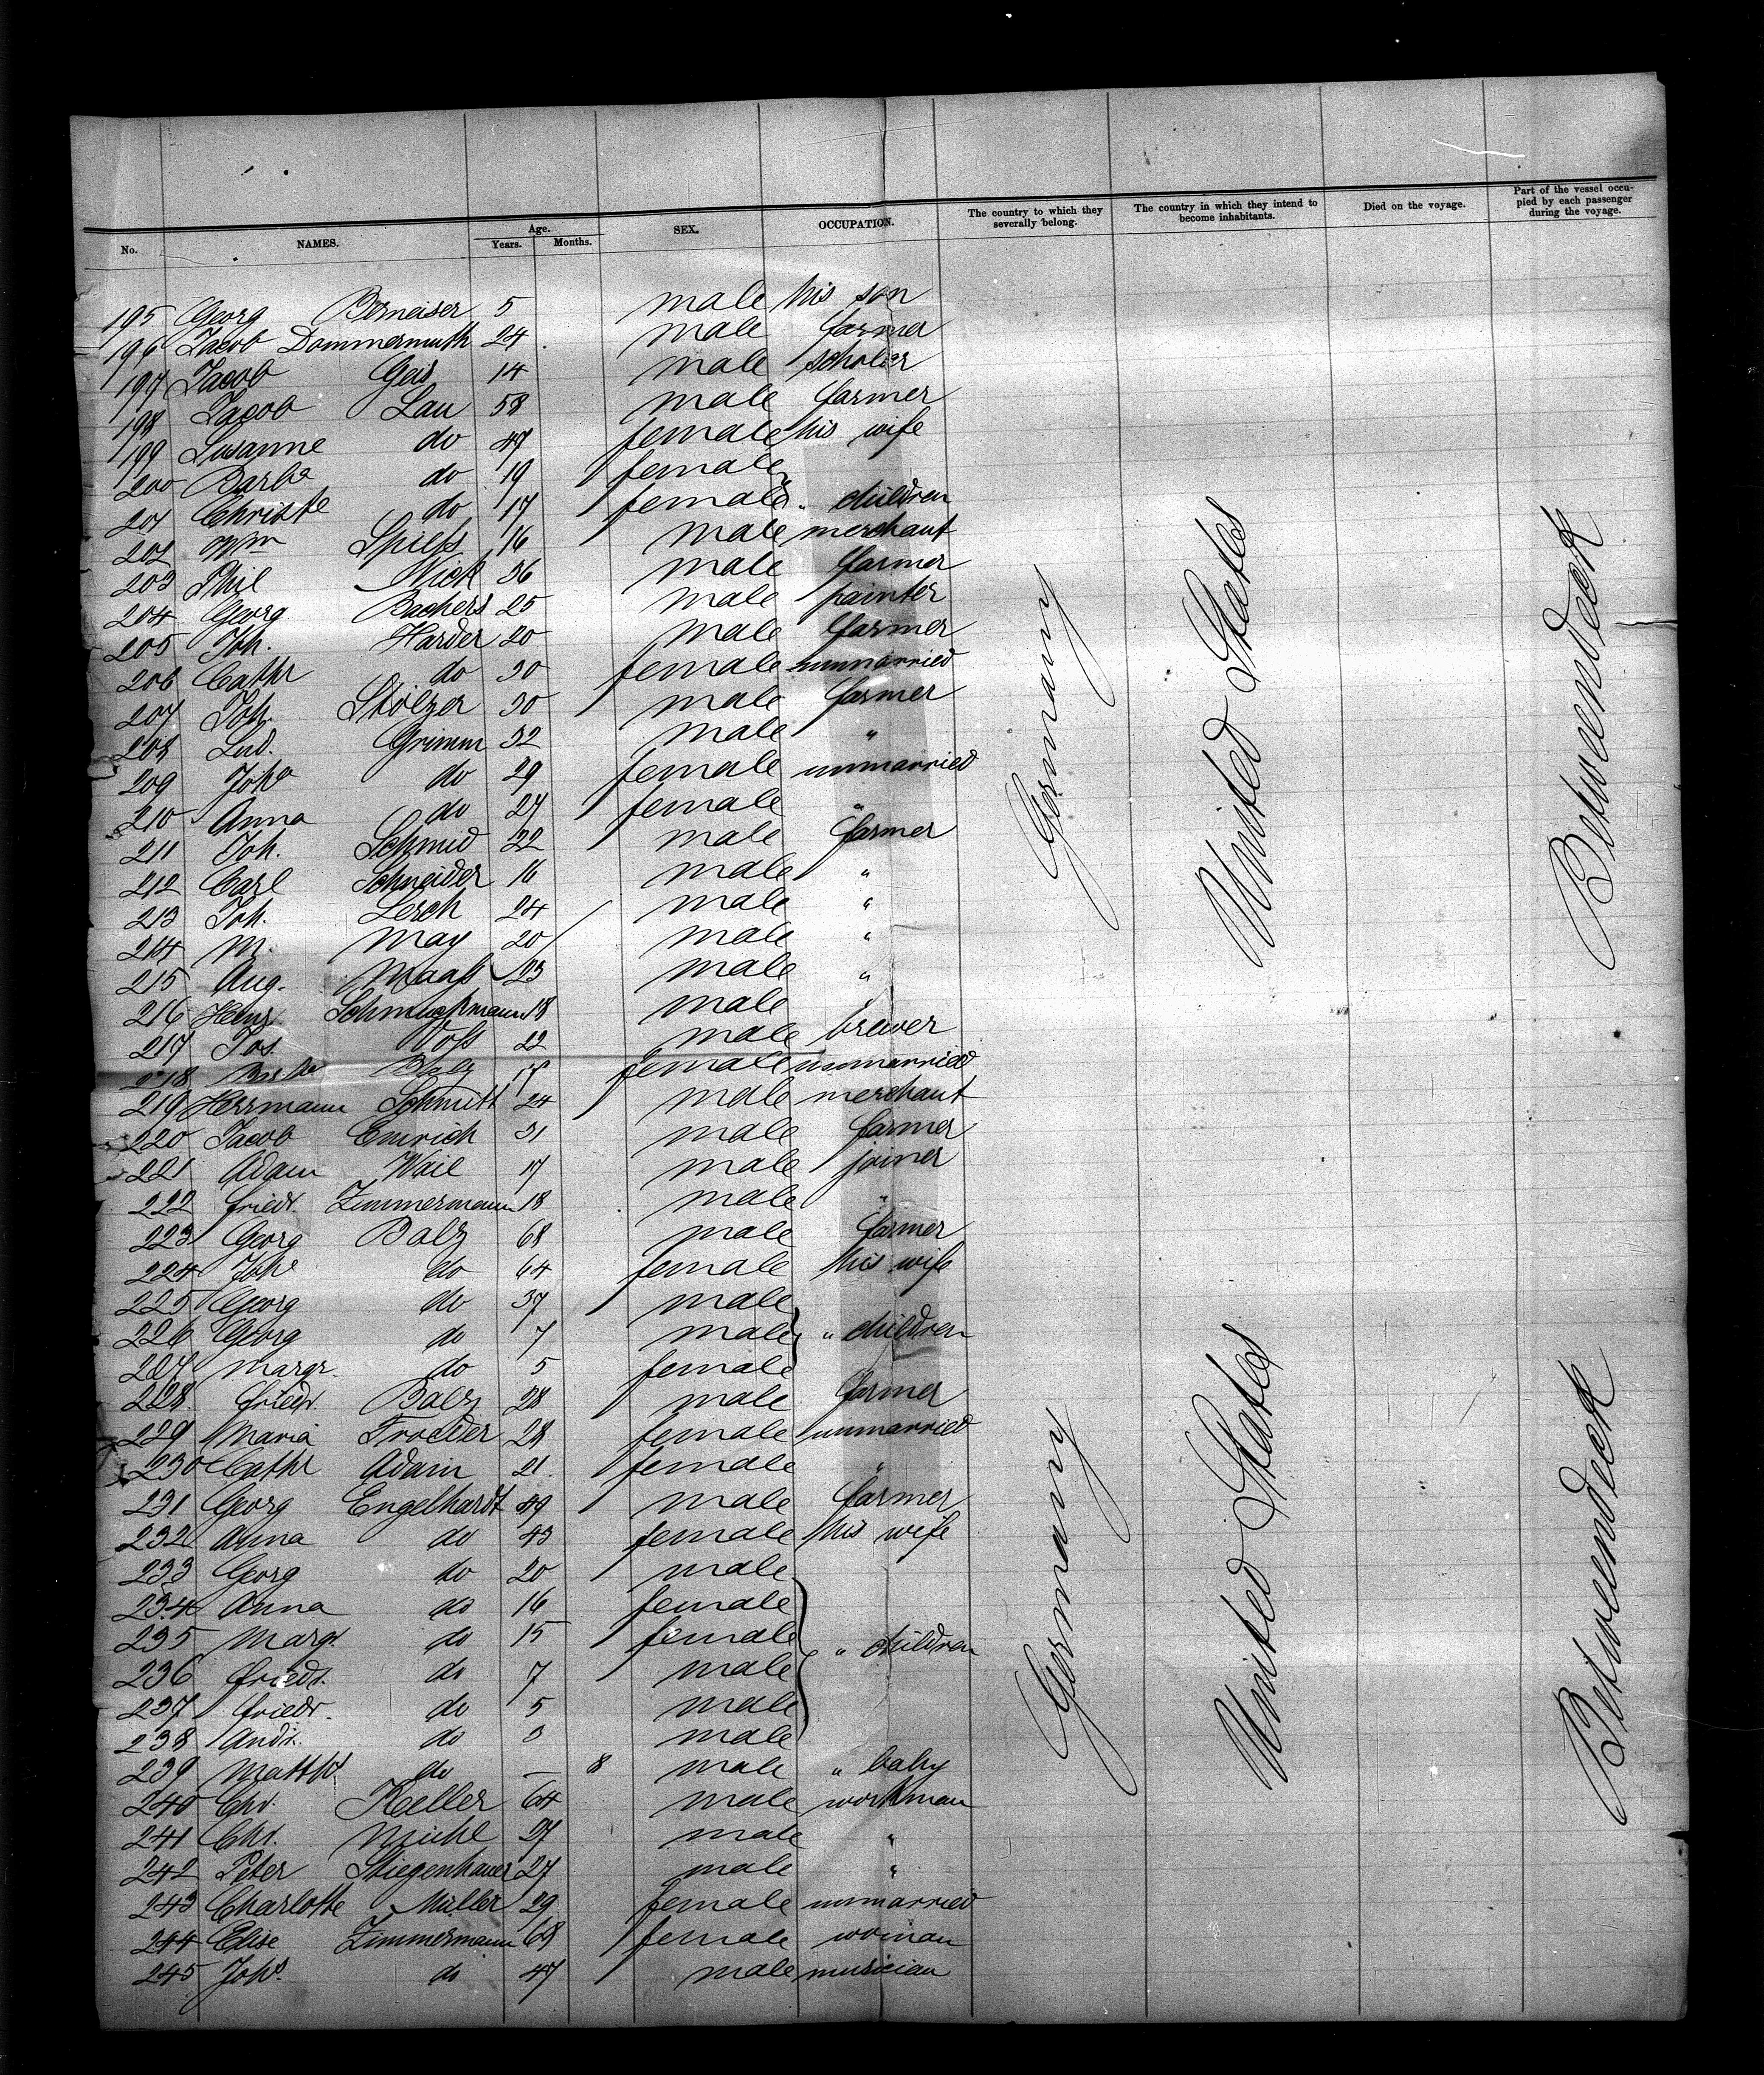 No. NAMES. Age. Years. Months. SEX. OCCUPATION. The country to which they severally belong. The country in which they intend to become inhabitants. Died on the voyage. Part of the vessel occupied by each passenger during the voyage.
195 Georg 5 male his son
196 Jacob Dommermuth 24 male farmer
197 Jacob Geis 14 male scholar
198 Jacob Lau 58 male farmer
199 Susanne do 47 female his wife
200 Barba do 19 female
201 Christe do 17 female " children
202 Wm Spiess 16 male merchant
203 Phil Wick 36 male farmer
204 Georg Bachers 25 male painter
205 Joh. Harder 20 male farmer
206 Cathr do 30 female unmarried
207 Joh. Stolzer 30 male farmer
208 Lud. Grimm 32 male "
209 Joha do 29 female unmarried
210 Anna do 27 female "
211 Joh. Schmid 22 male farmer
212 Carl Schneider 16 male "
213 Joh. Lerch 24 male "
214 M. May 20 male "
215 Aug. Maass 23 male "
216 Heinr. 18 male
217 Jos. Voss 22 male brewer
218 Balz 17 female unmarried
219 Herrmann Schmitt 24 male merchant
220 Jacob Emrich 31 male farmer
221 Adam Wail 17 male joiner
222 Friedr. Zimmermann 18 male "
223 Georg Balz 68 male farmer
224 Johe do 64 female his wife
225 Georg do 37 male
226 Georg do 7 male " children
227 Margr. do 5 female
228 Friedr. Balz 28 male farmer
229 Maria 28 female unmarried
230 Cathr Adam 21 female "
231 Georg Engelhardt 49 male farmer
232 Anna do 43 female his wife
233 Georg do 20 male
234 Anna do 16 female
235 Margr. do 15 female " children
236 Friedr. do 7 male
237 Friedr. do 5 male
238 Andr. do 3 male
239 Matths do — 8 male " baby
240 Chr. Keller 64 male workman
241 Chr. Michl 27 male "
242 Peter Stiegenhauer 27 male "
243 Charlotte Müller 29 female unmarried
244 Elise Zimmermann 68 female woman
245 Johs. do 47 male musician
Germany
United States
Betweendeck
Germany
United States
Betweendeck